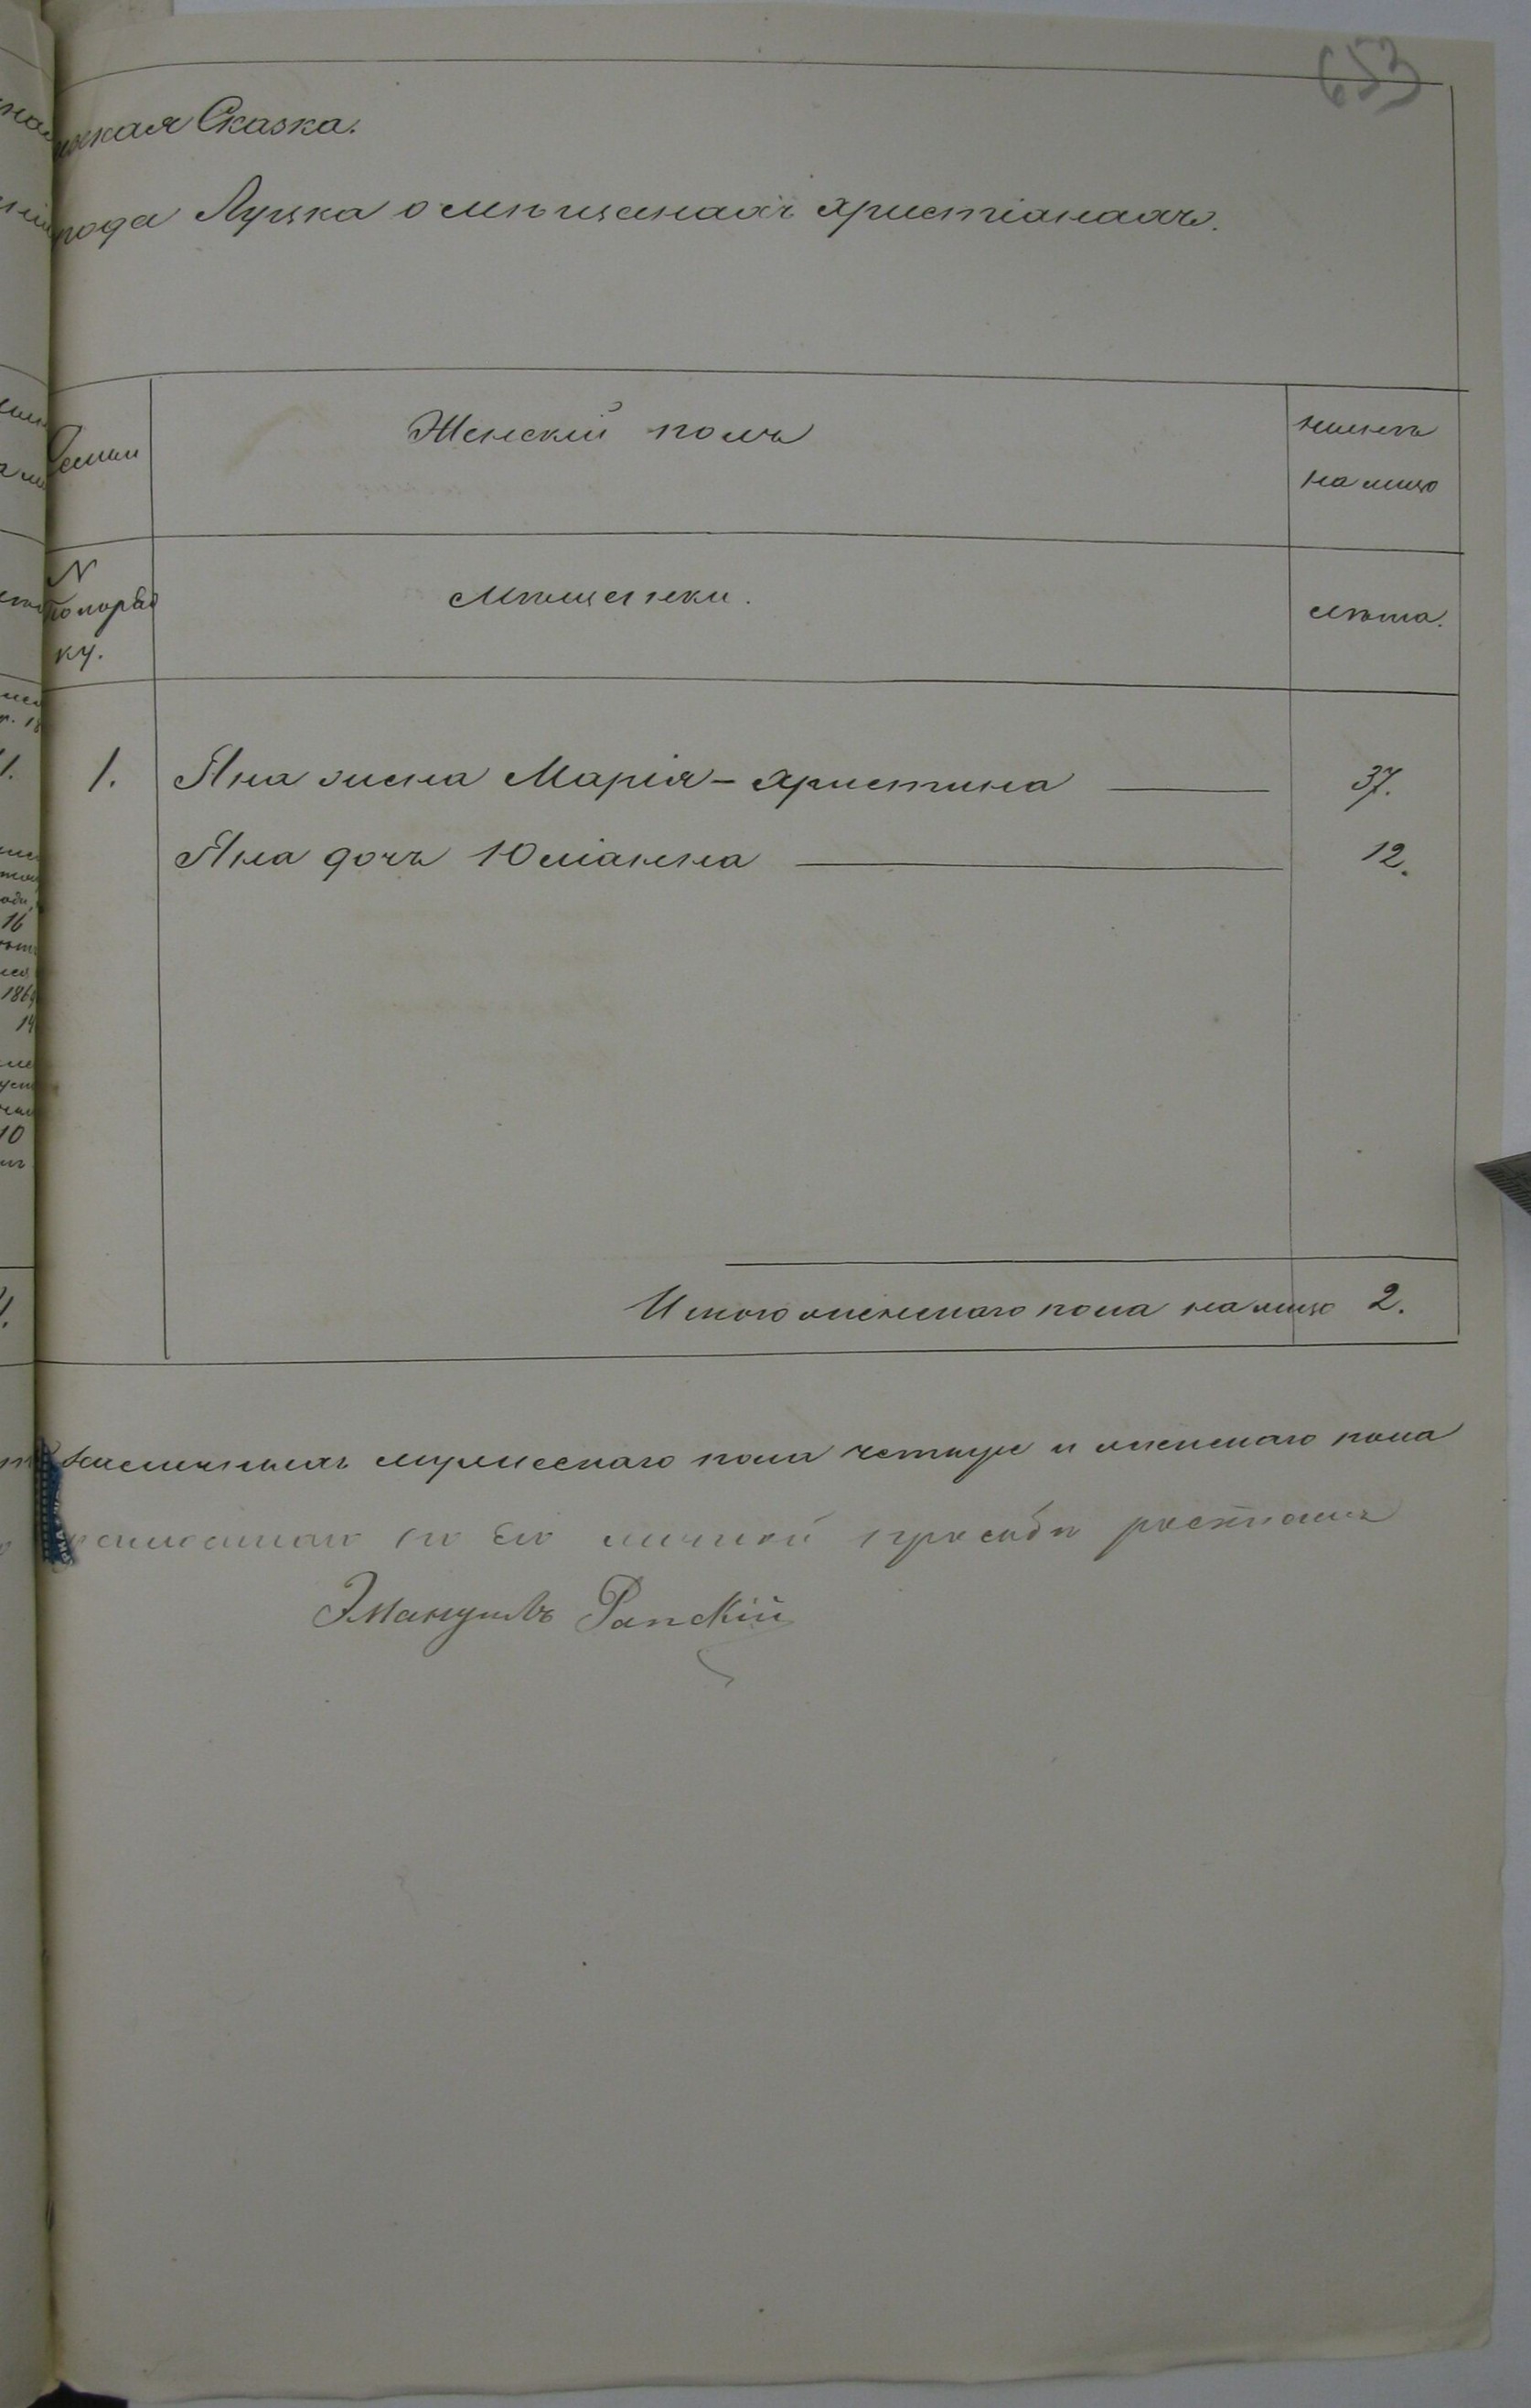 653
ская Сказка.
рода Луцка о мѣщанахъ христіанахъ.
Семьи
Женскій полъ
нынѣ
на лицо
N
по поряд
ку.
Мѣщанки.
Лѣта.
1. Яна жена Марія-Христина 37.
Яна дочь Юліанна 12.
Итого женскаго пола на лицо 2.
наличныхъ мужескаго пола четыре и женскаго пола
по его личной просьбѣ
Эмануилъ Рапскій